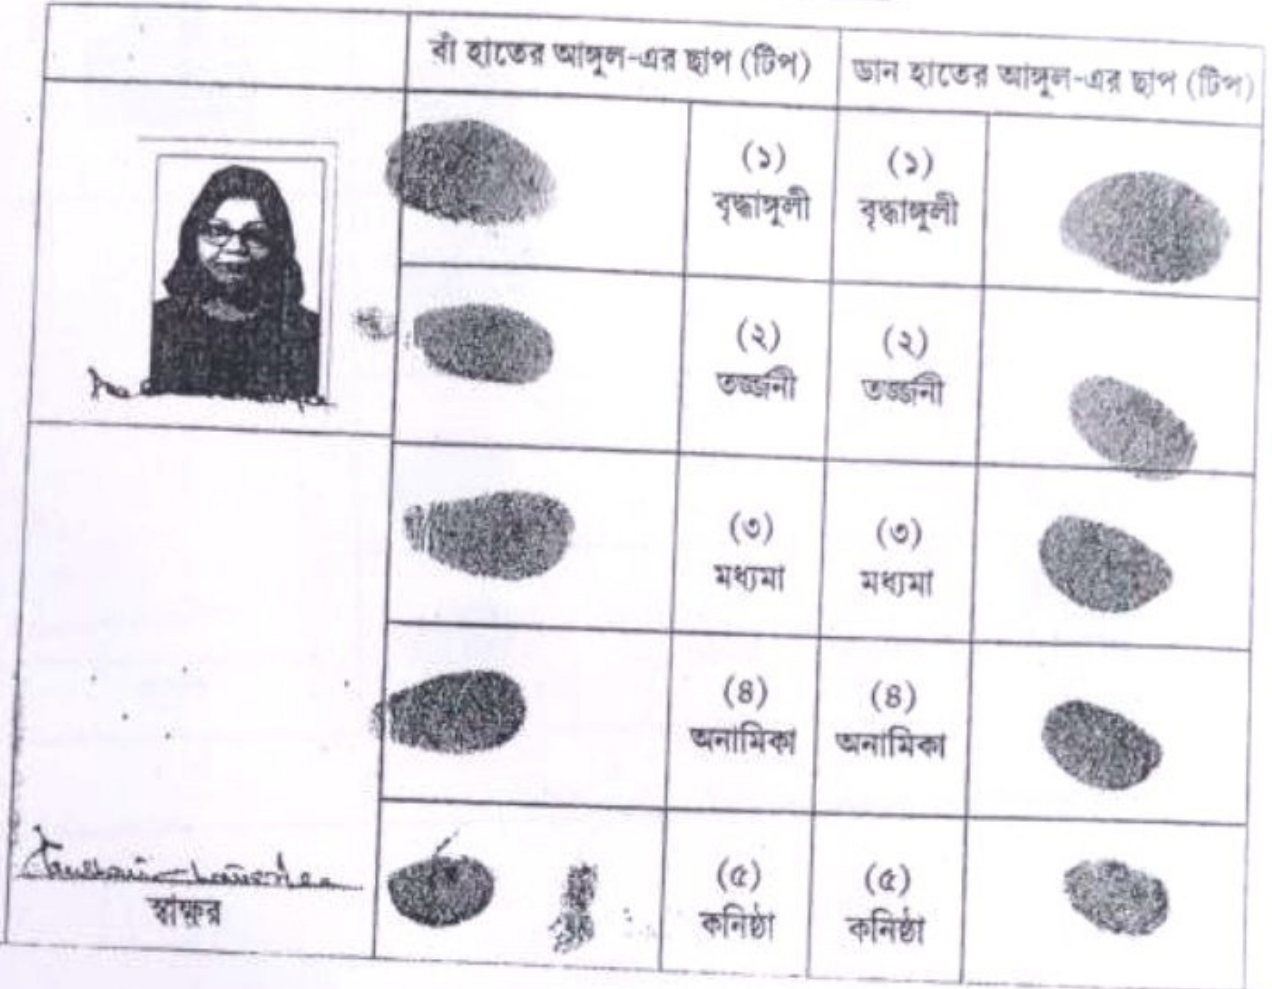 বাঁ হাতের আঙ্গুল-এর ছাপ (টিপ)
ডান হাতের আঙ্গুল-এর ছাপ (টিপ)
(১) (১)
বৃদ্ধাঙ্গুলী বৃদ্ধাঙ্গুলী
(২) (২)
তর্জ্জনী তর্জ্জনী
(৩) (৩)
মধ্যমা মধ্যমা
(৪) (৪)
অনামিকা অনামিকা
(৫) (৫)
কনিষ্ঠা কনিষ্ঠা
স্বাক্ষর